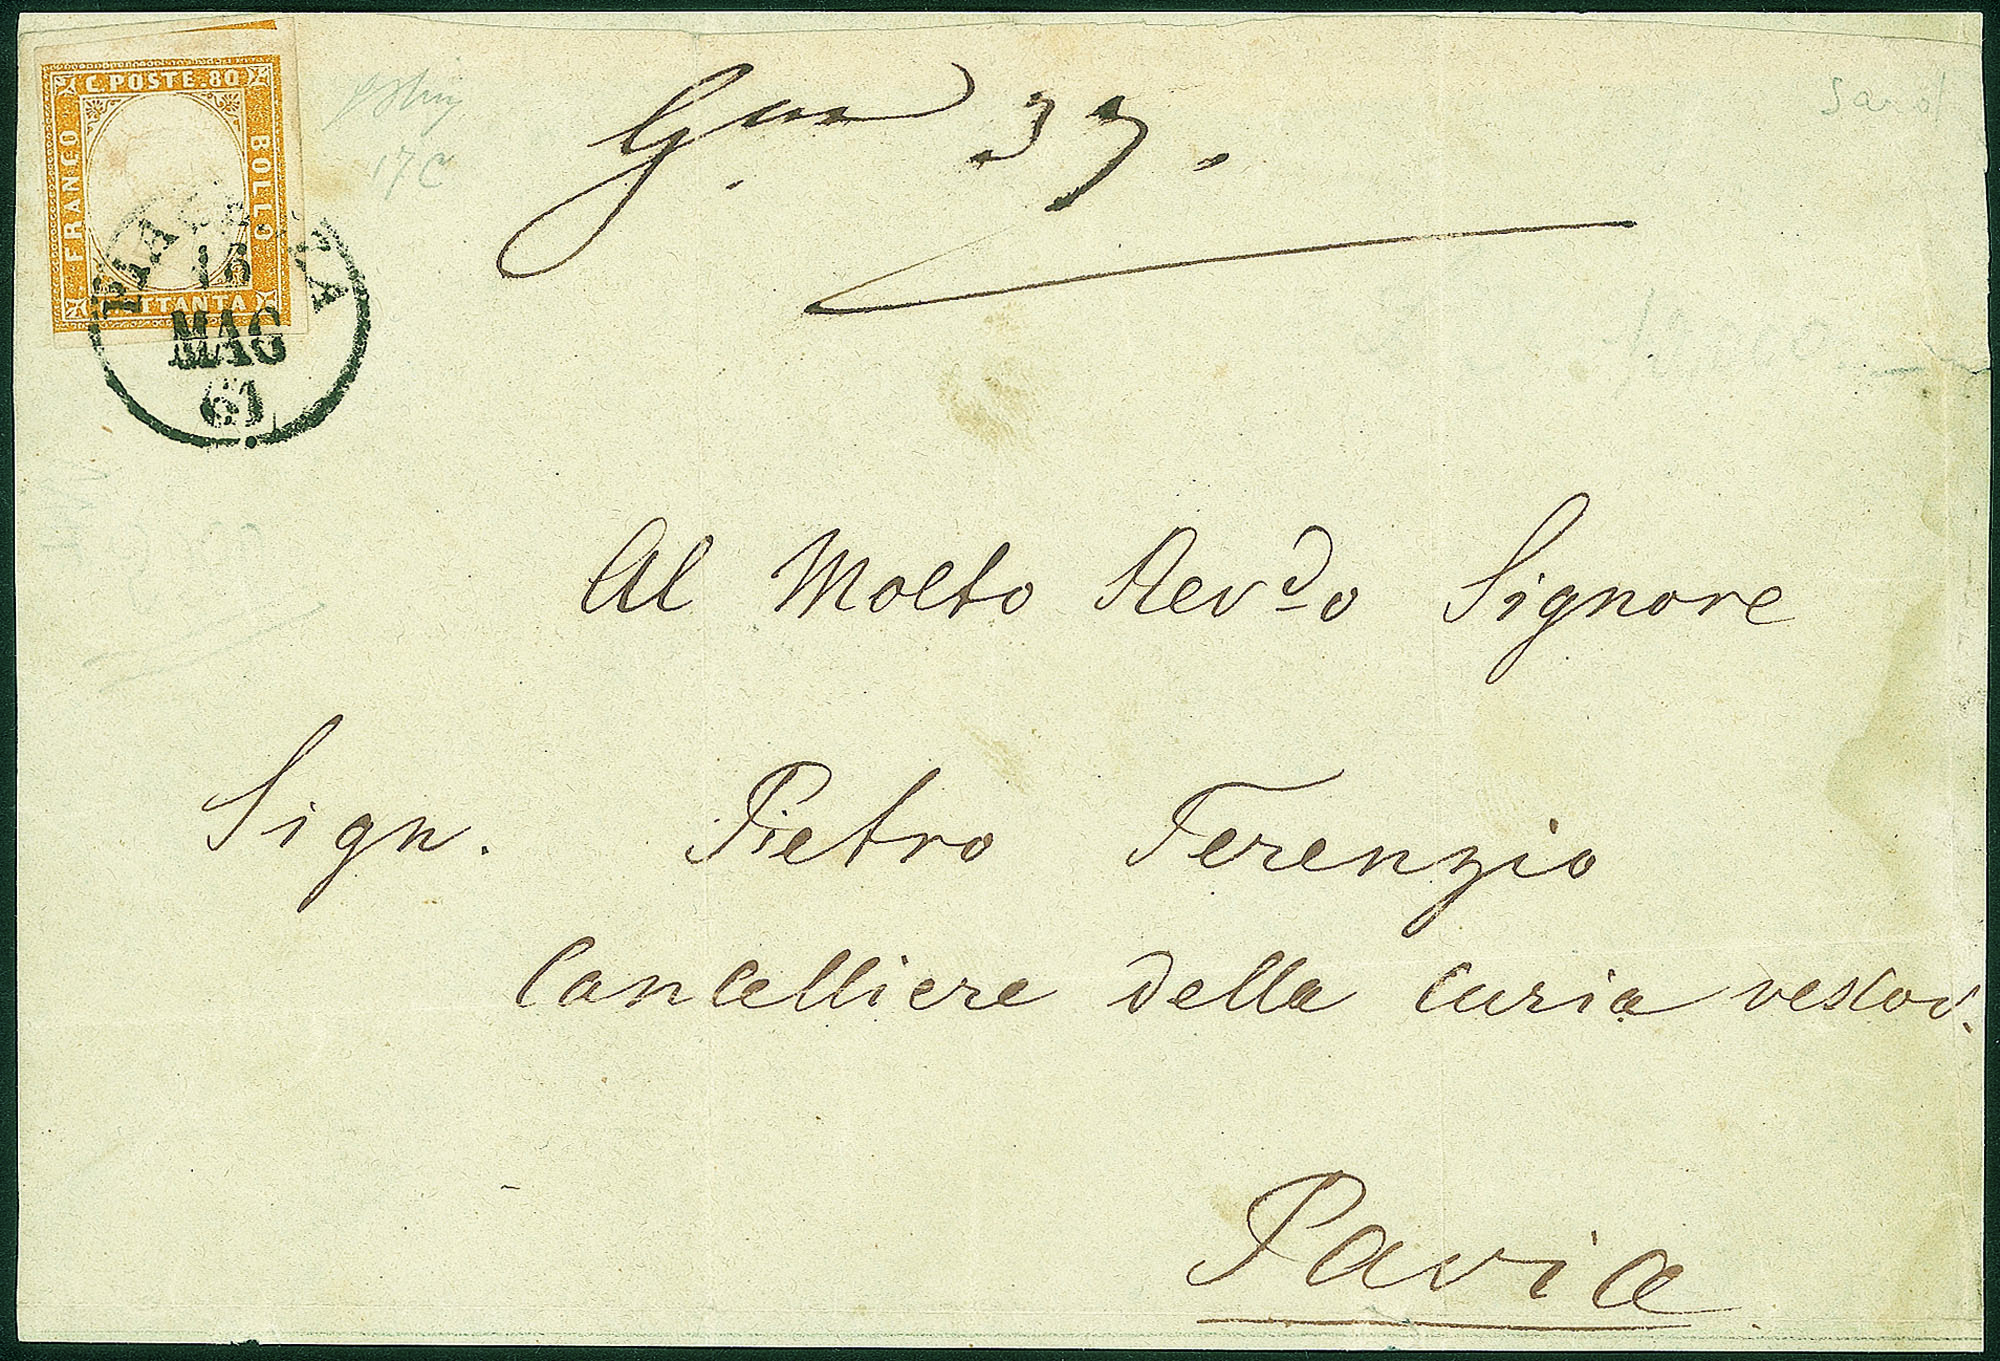 C. POSTE. 80
FRANCO
BOLLO
TTANTA
PIACENZA
16
MAG
61
17 C
Gm 37.
Al Molto Rev.do Signore
Sign. Pietro Terenzio
Cancelliere della Curia vescov.
Pavia